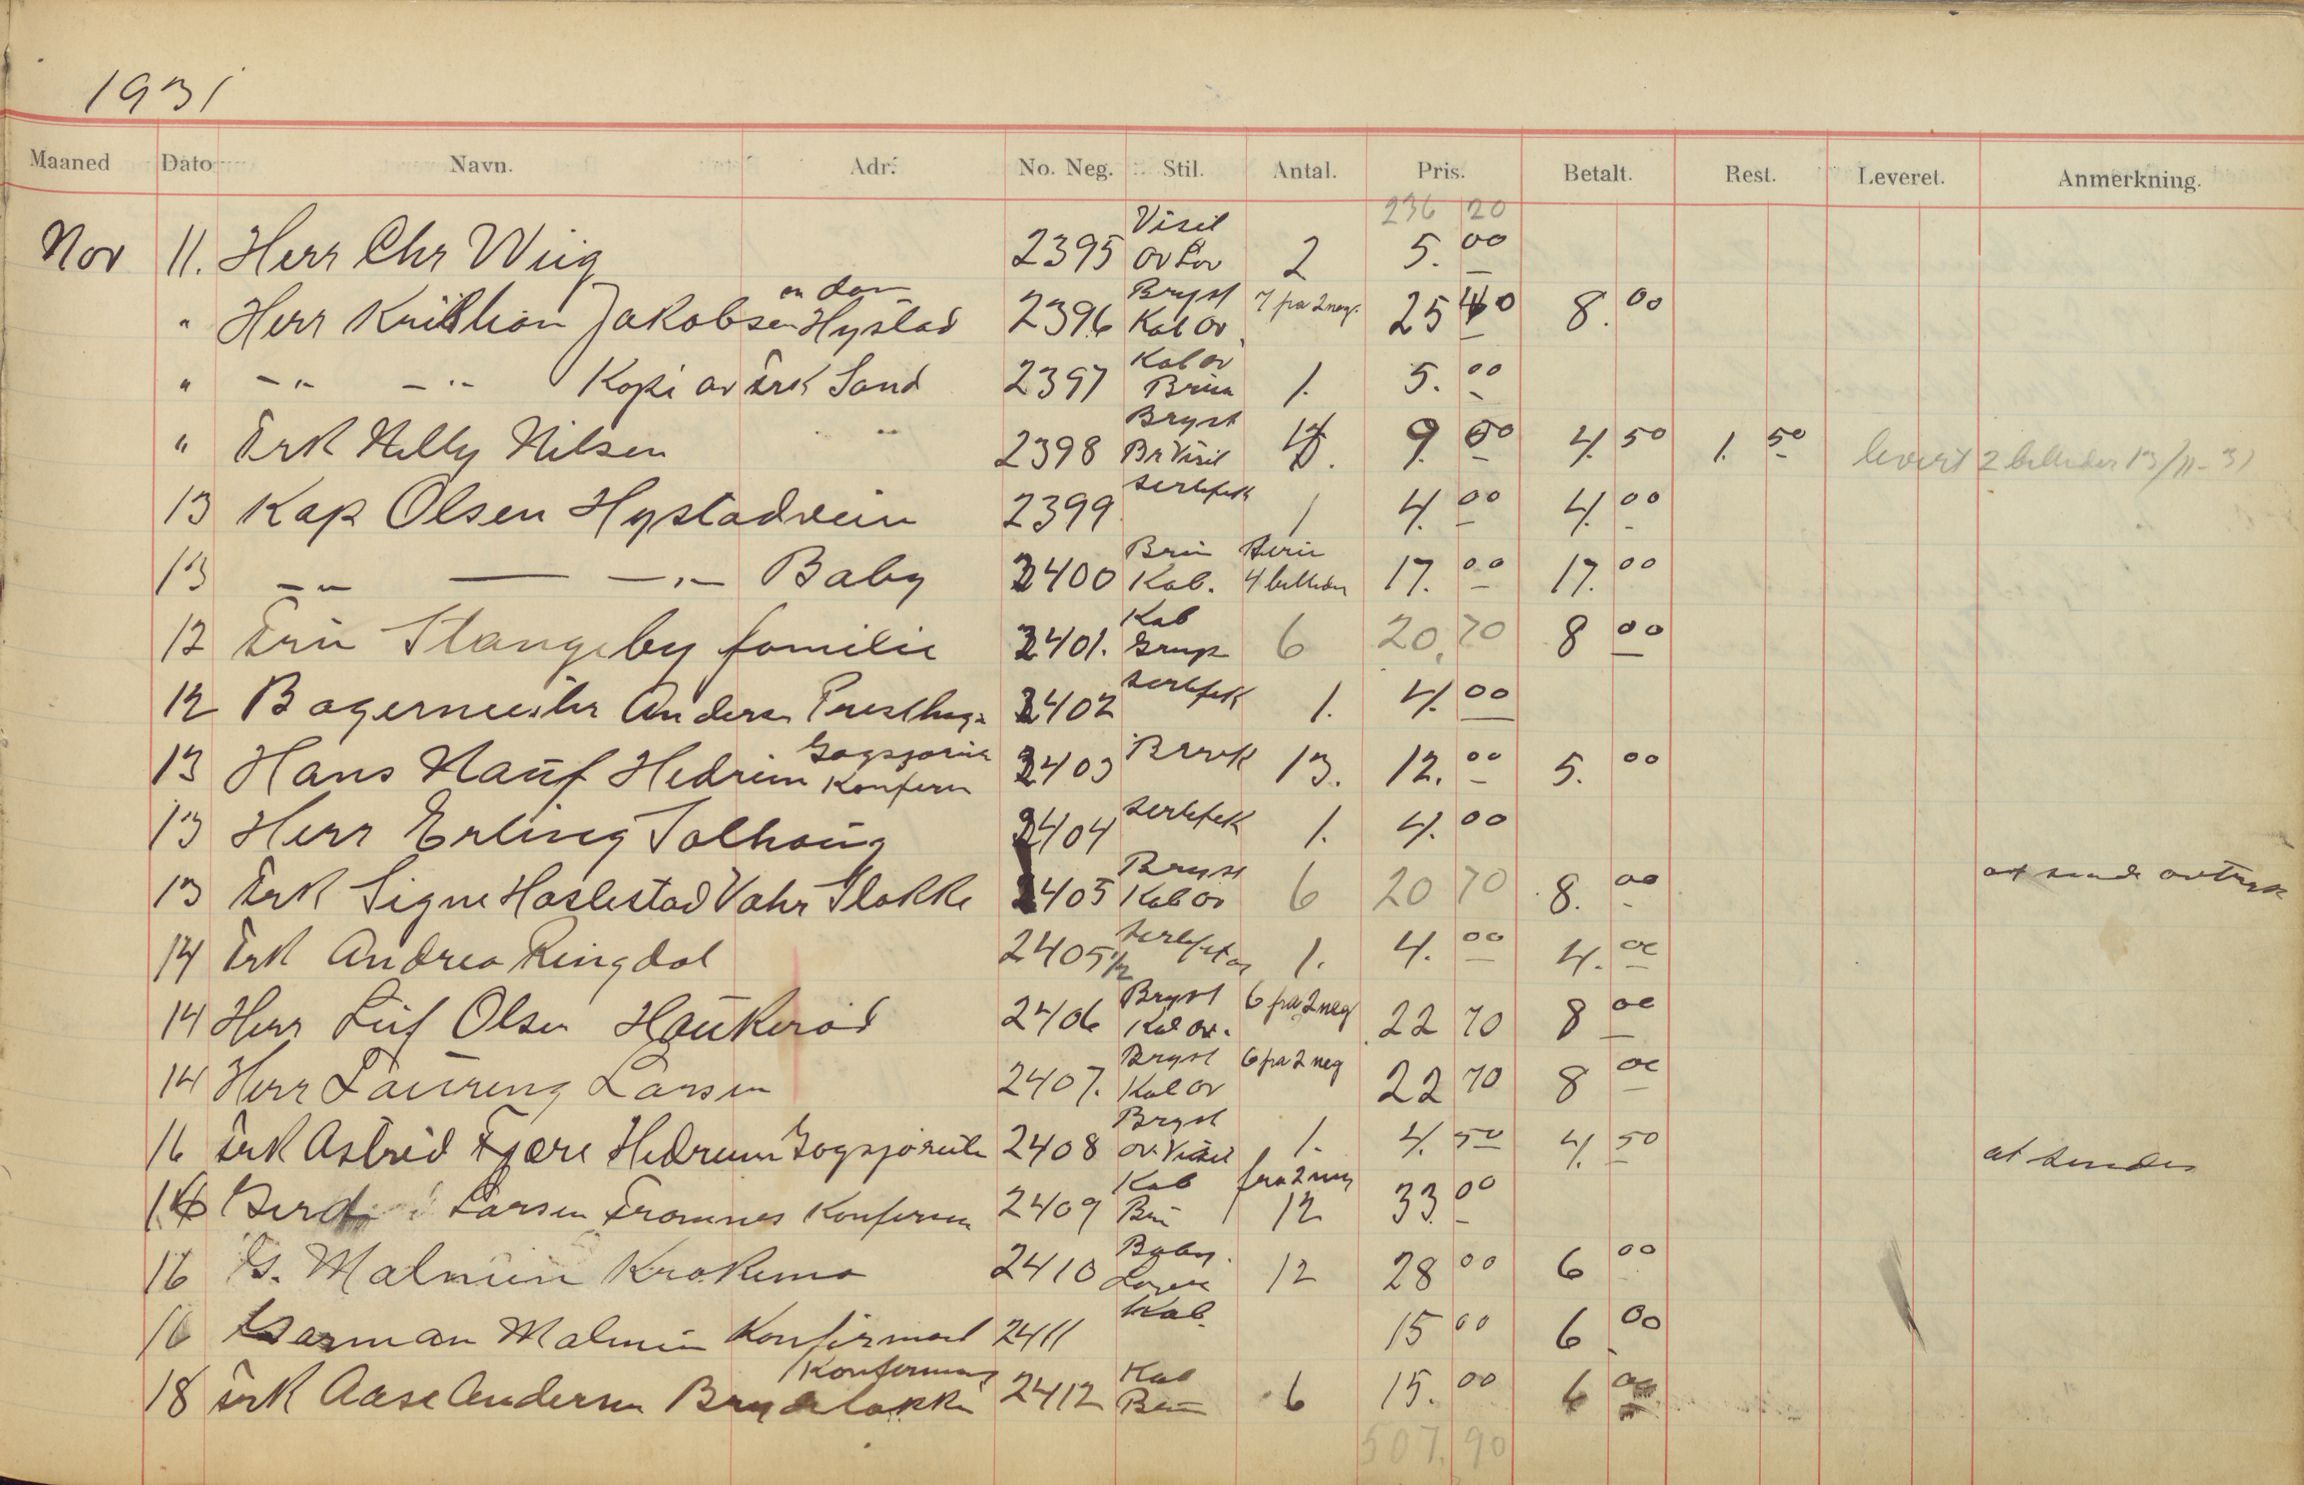 1931
Maaned Dato Navn. Adr. No. Neg. Stil. Antal. Pris. Betalt. Rest. Leveret. Anmerkning.
236 20
Nov 11. Herr Chr Wiig 2395 Visit ov Lov 2 5. 00
" Herr Kristian Jakobsen Hystad 2396 Bryst Kab Ov 7 fra 2 neg. 25 40 8. 00
" -"- -"- Kopi av Frk Sand 2397 Kab ov Brun 1. 5. 00
" Frk Nelly Nilsen 2398 Bryst Br Visit 9. 00 4. 50 1. 50 levert 2 billeder 13/11-31
13 Kap Olsen Hystadvein 2399 1 4. 00 4. 00
13 -"- -"- Baby 2400 Brun Kab. Serie 4 billeder 17. 00 17. 00
12 Fru Stangeby familie 2401. Kab Grup 6 20. 70 8 00
12 Bagermester Anderse Presthag 2402 1. 4. 00
13 Hans Nauf Hedrum Gogsjorie Konferm 2403 13. 12. 00 5. 00
13 Herr Erling Solhaug 2404 1. 4. 00
13 Frk Signe Haslestad Vahr Slokke 2405 Bryst Kab ov 6 20 70 8. 00 at sende avtryk
14 Frk Andrea Ringdal 2405 1/2 1. 4. 00 4. 00
14 Herr Leif Olsen Haukerød 2406 Bryst Kab ov. 6 fra 2 neg 22 70 8 00
14 Herr Laureng Larsen 2407. Bryst Kab ov 6 fra 2 neg 22 70 8 00
16 Frk Astrid Fjære Hedrum Gogsjørute 2408 Bryst ov. Visit 1. 4. 50 4. 50 at sendes
16 Gerd Larsen Framnes Konferm 2409 Kab Bru fra 2 neg 12 33. 00
16 G. Malmin Krokemo 2410 Baby 12 28 00 6 00
16 German Malmin Konfirmat 2411 Kab. 15 00 6. 00
18 Frk Aase Andersen Bryde lokke Konfermat 2412 Kab Bru 6 15. 00 6 00
507. 90